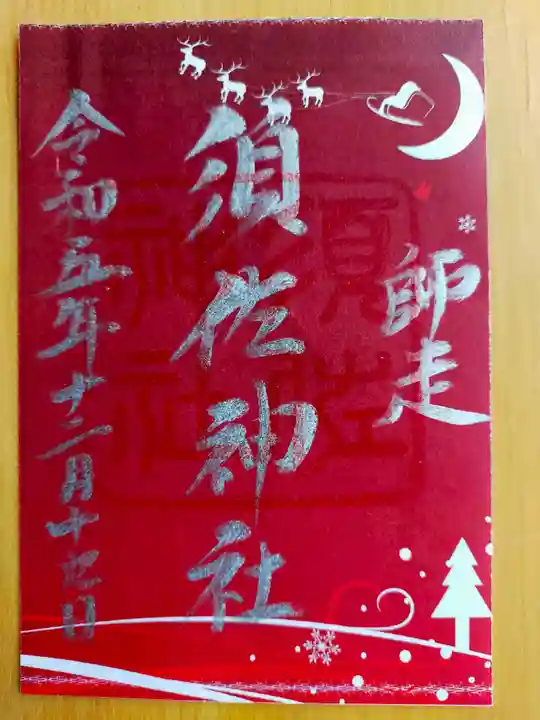 師走
須佐神社
須佐
神社
令和五年十二月十七日